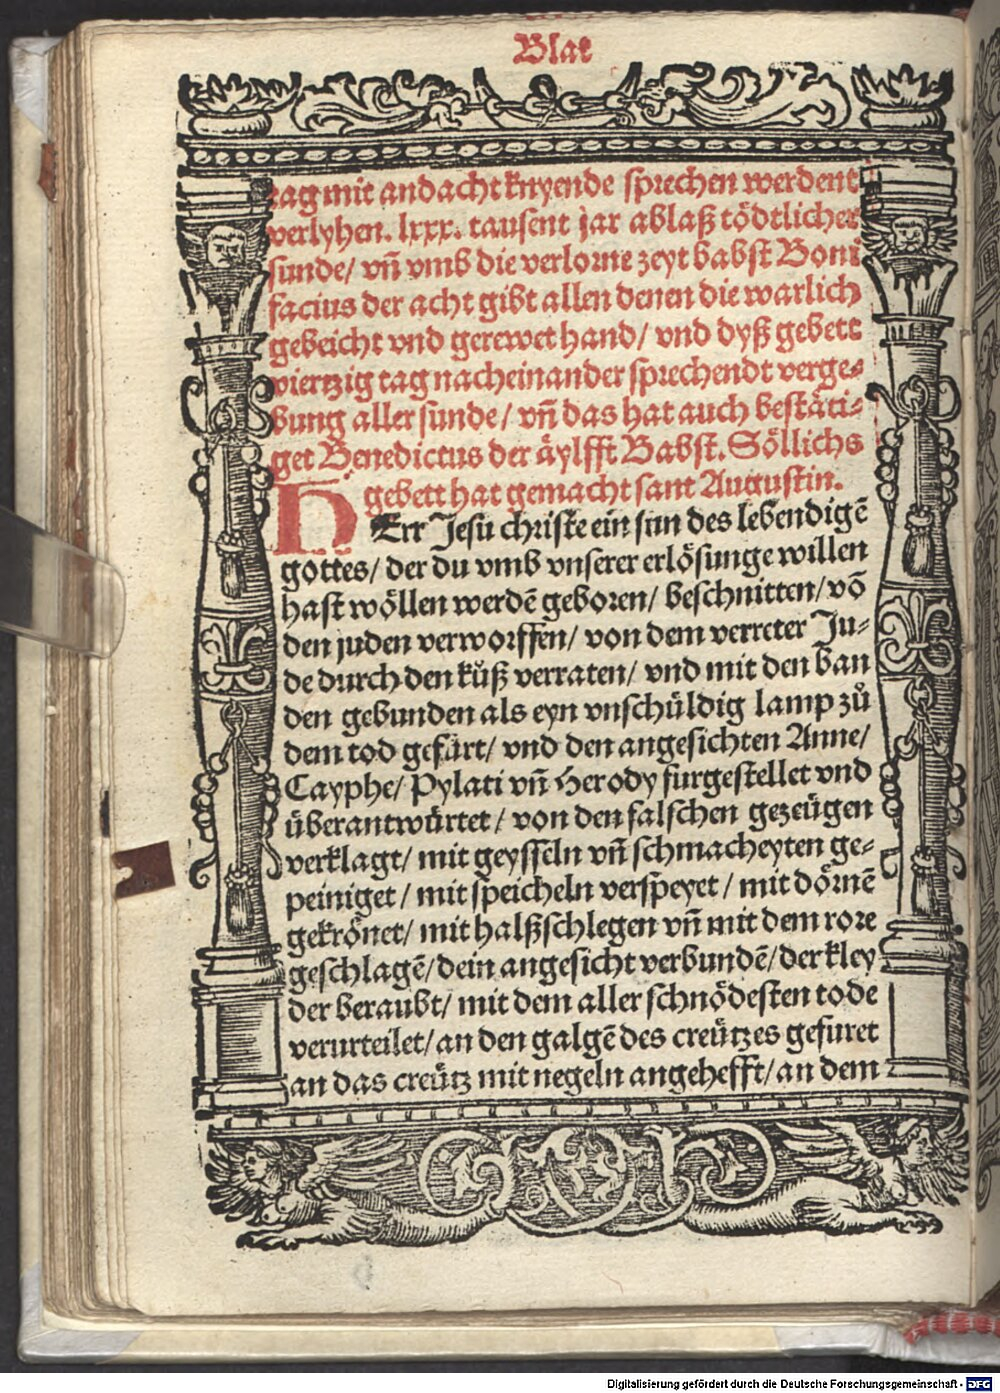 Blat
tag mit andacht knyende sprechen werdent
verlyhen. lxxx. tausent jar ablaß tödtlicher
sunde/ vñ vmb die verlorne zeyt babst Boni
facius der acht gibt allen denen die warlich
gebeicht vnd gerewet hand/ vnd dyß gebett
viertzig tag nacheinander sprechendt verge⸗
bung aller sunde/ vñ das hat auch bestäti⸗
get Benedictus der äylfft Babst. Söllichs
gebett hat gemacht sant Augustin.
HErr Jesu christe ein sun des lebendigẽ
gottes/ der du vmb vnserer erlösunge willen
hast wöllen werdẽ geboren/ beschnitten/ võ
den juden verworffen/ von dem verreter Ju⸗
de durch den kůß verraten/ vnd mit den ban
den gebunden als eyn vnschüldig lamp zů
dem tod gefürt/ vnd den angesichten Anne/
Cayphe/ Pylati vñ Herody furgestellet vnd
überantwürtet/ von den falschen gezeügen
verklagt/ mit geysseln vñ schmacheyten ge⸗
peiniget/ mit speicheln verspeyet/ mit dörnẽ
gekrönet/ mit halßschlegen vñ mit dem rore
geschlagẽ/ dein angesicht verbundẽ/ der kley
der beraubt/ mit dem aller schnödesten tode
verurteilet/ an den galgẽ des creützes gefuret
an das creütz mit negeln angehefft/ an dem
Digitalisierung gefördert durch die Deutsche Forschungsgemeinschaft - DFG